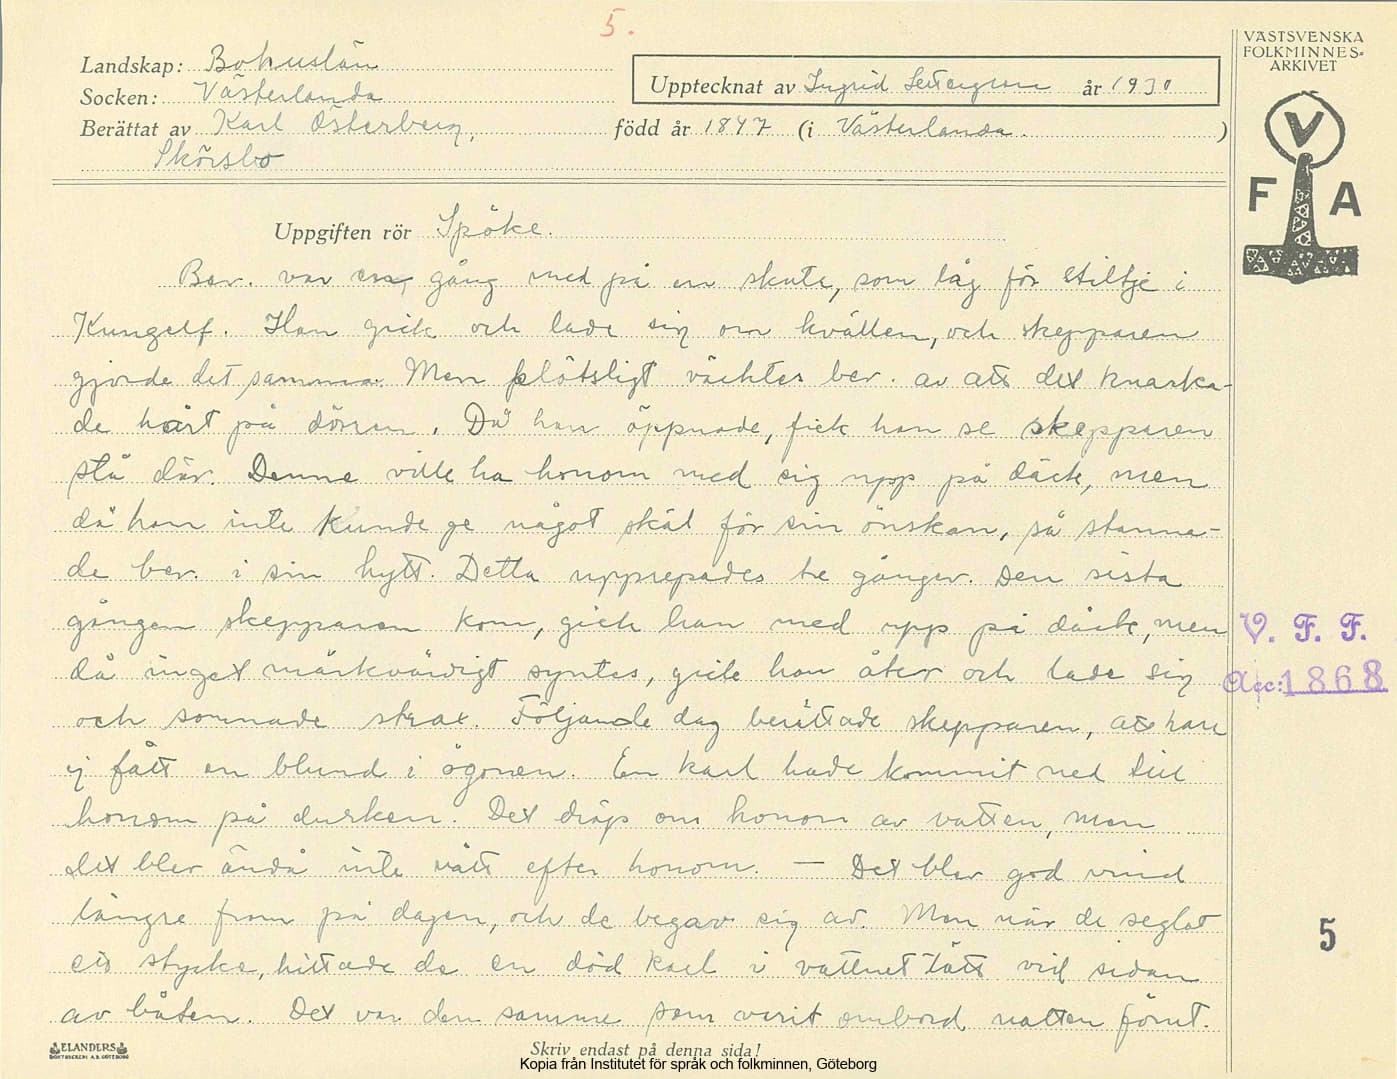 5.
VÄSTSVENSKA
FOLKMINNES-
ARKIVET
Landskap: Bohuslän
Socken: Västerlanda
Upptecknat av Ingrid år 1930
Berättat av Karl Österberg, född år 1847 (i Västerlanda.)
Skörsbo
V
F A
Uppgiften rör Spöke.
Ber. var en gång med på en skuta, som låg för stiltje i
Kungelf. Han gick och lade sig om kvällen, och skepparen
gjorde det samma. Men plötsligt väcktes ber. av att det knarka-
de hårt på dörren. Då han öppnade, fick han se skepparen
stå där. Denne ville ha honom med sig upp på däck, men
då han inte kunde ge något skäl för sin önskan, så stanna-
de ber. i sin hytt. Detta upprepades tre gånger. Den sista
gången skepparen kom, gick han med upp på däck, men
då inget märkvärdigt syntes, gick han åter och lade sig
och somnade strax. Följande dag berättade skepparen, att han
ej fått en blund i ögonen. En karl hade kommit ned till
honom på durken. Det dröp om honom av vatten, men
det blev ändå inte vått efter honom. — Det blev god vind
längre fram på dagen, och de begav sig av. Men när de seglat
ett stycke, hittade de en död karl i vattnet tätt vid sidan
av båten. Det var den samme som varit ombord natten förut.
V. F. F.
Acc: 1868
5
ELANDERS
BOKTRYCKERI A.B. GÖTEBORG
Skriv endast på denna sida!
Kopia från Institutet för språk och folkminnen, Göteborg